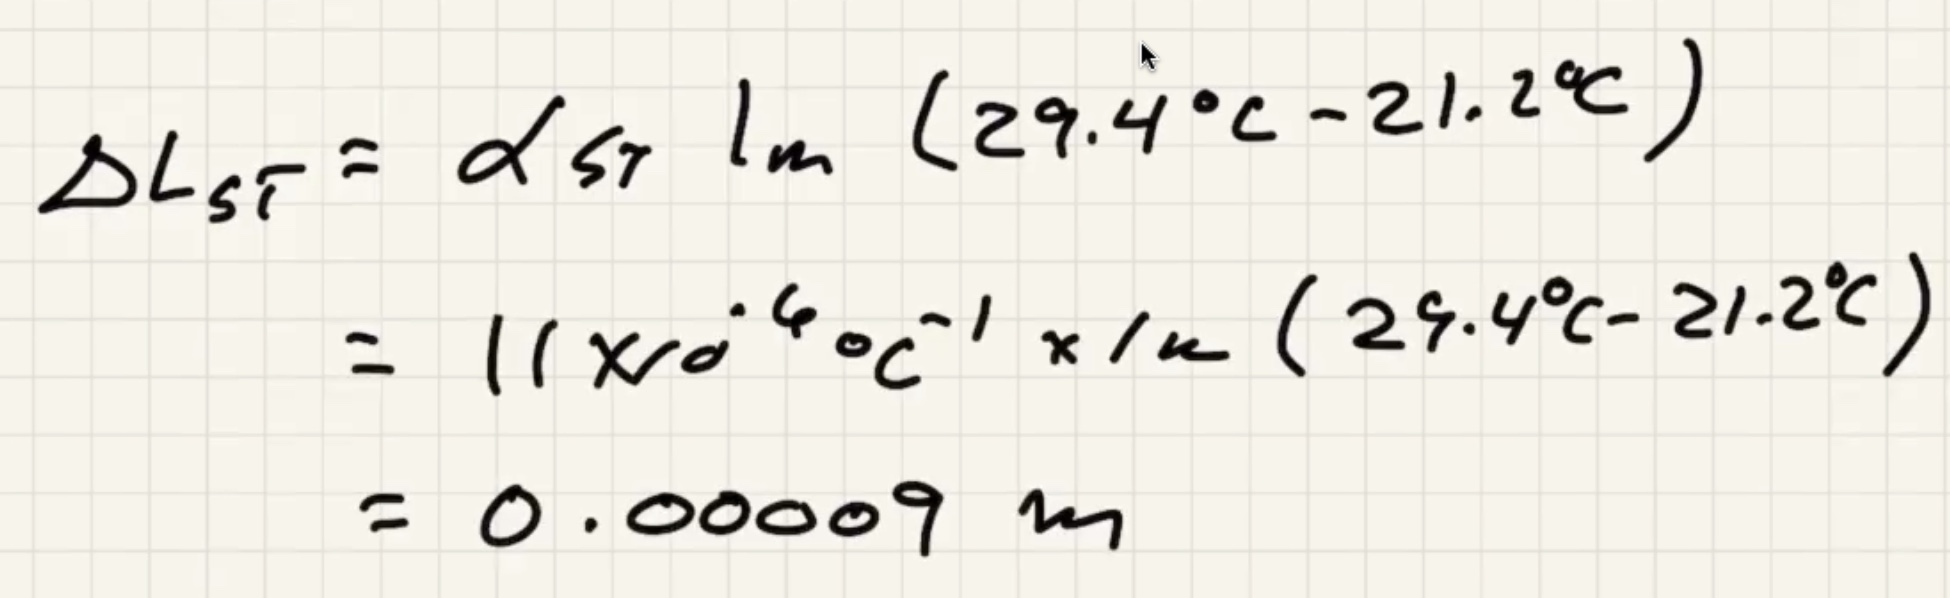 ΔL_ST = α_ST 1m (29.4°C - 21.2°C)
= 11 x 10^-6 °C^-1 x 1m (29.4°C - 21.2°C)
= 0.00009 m